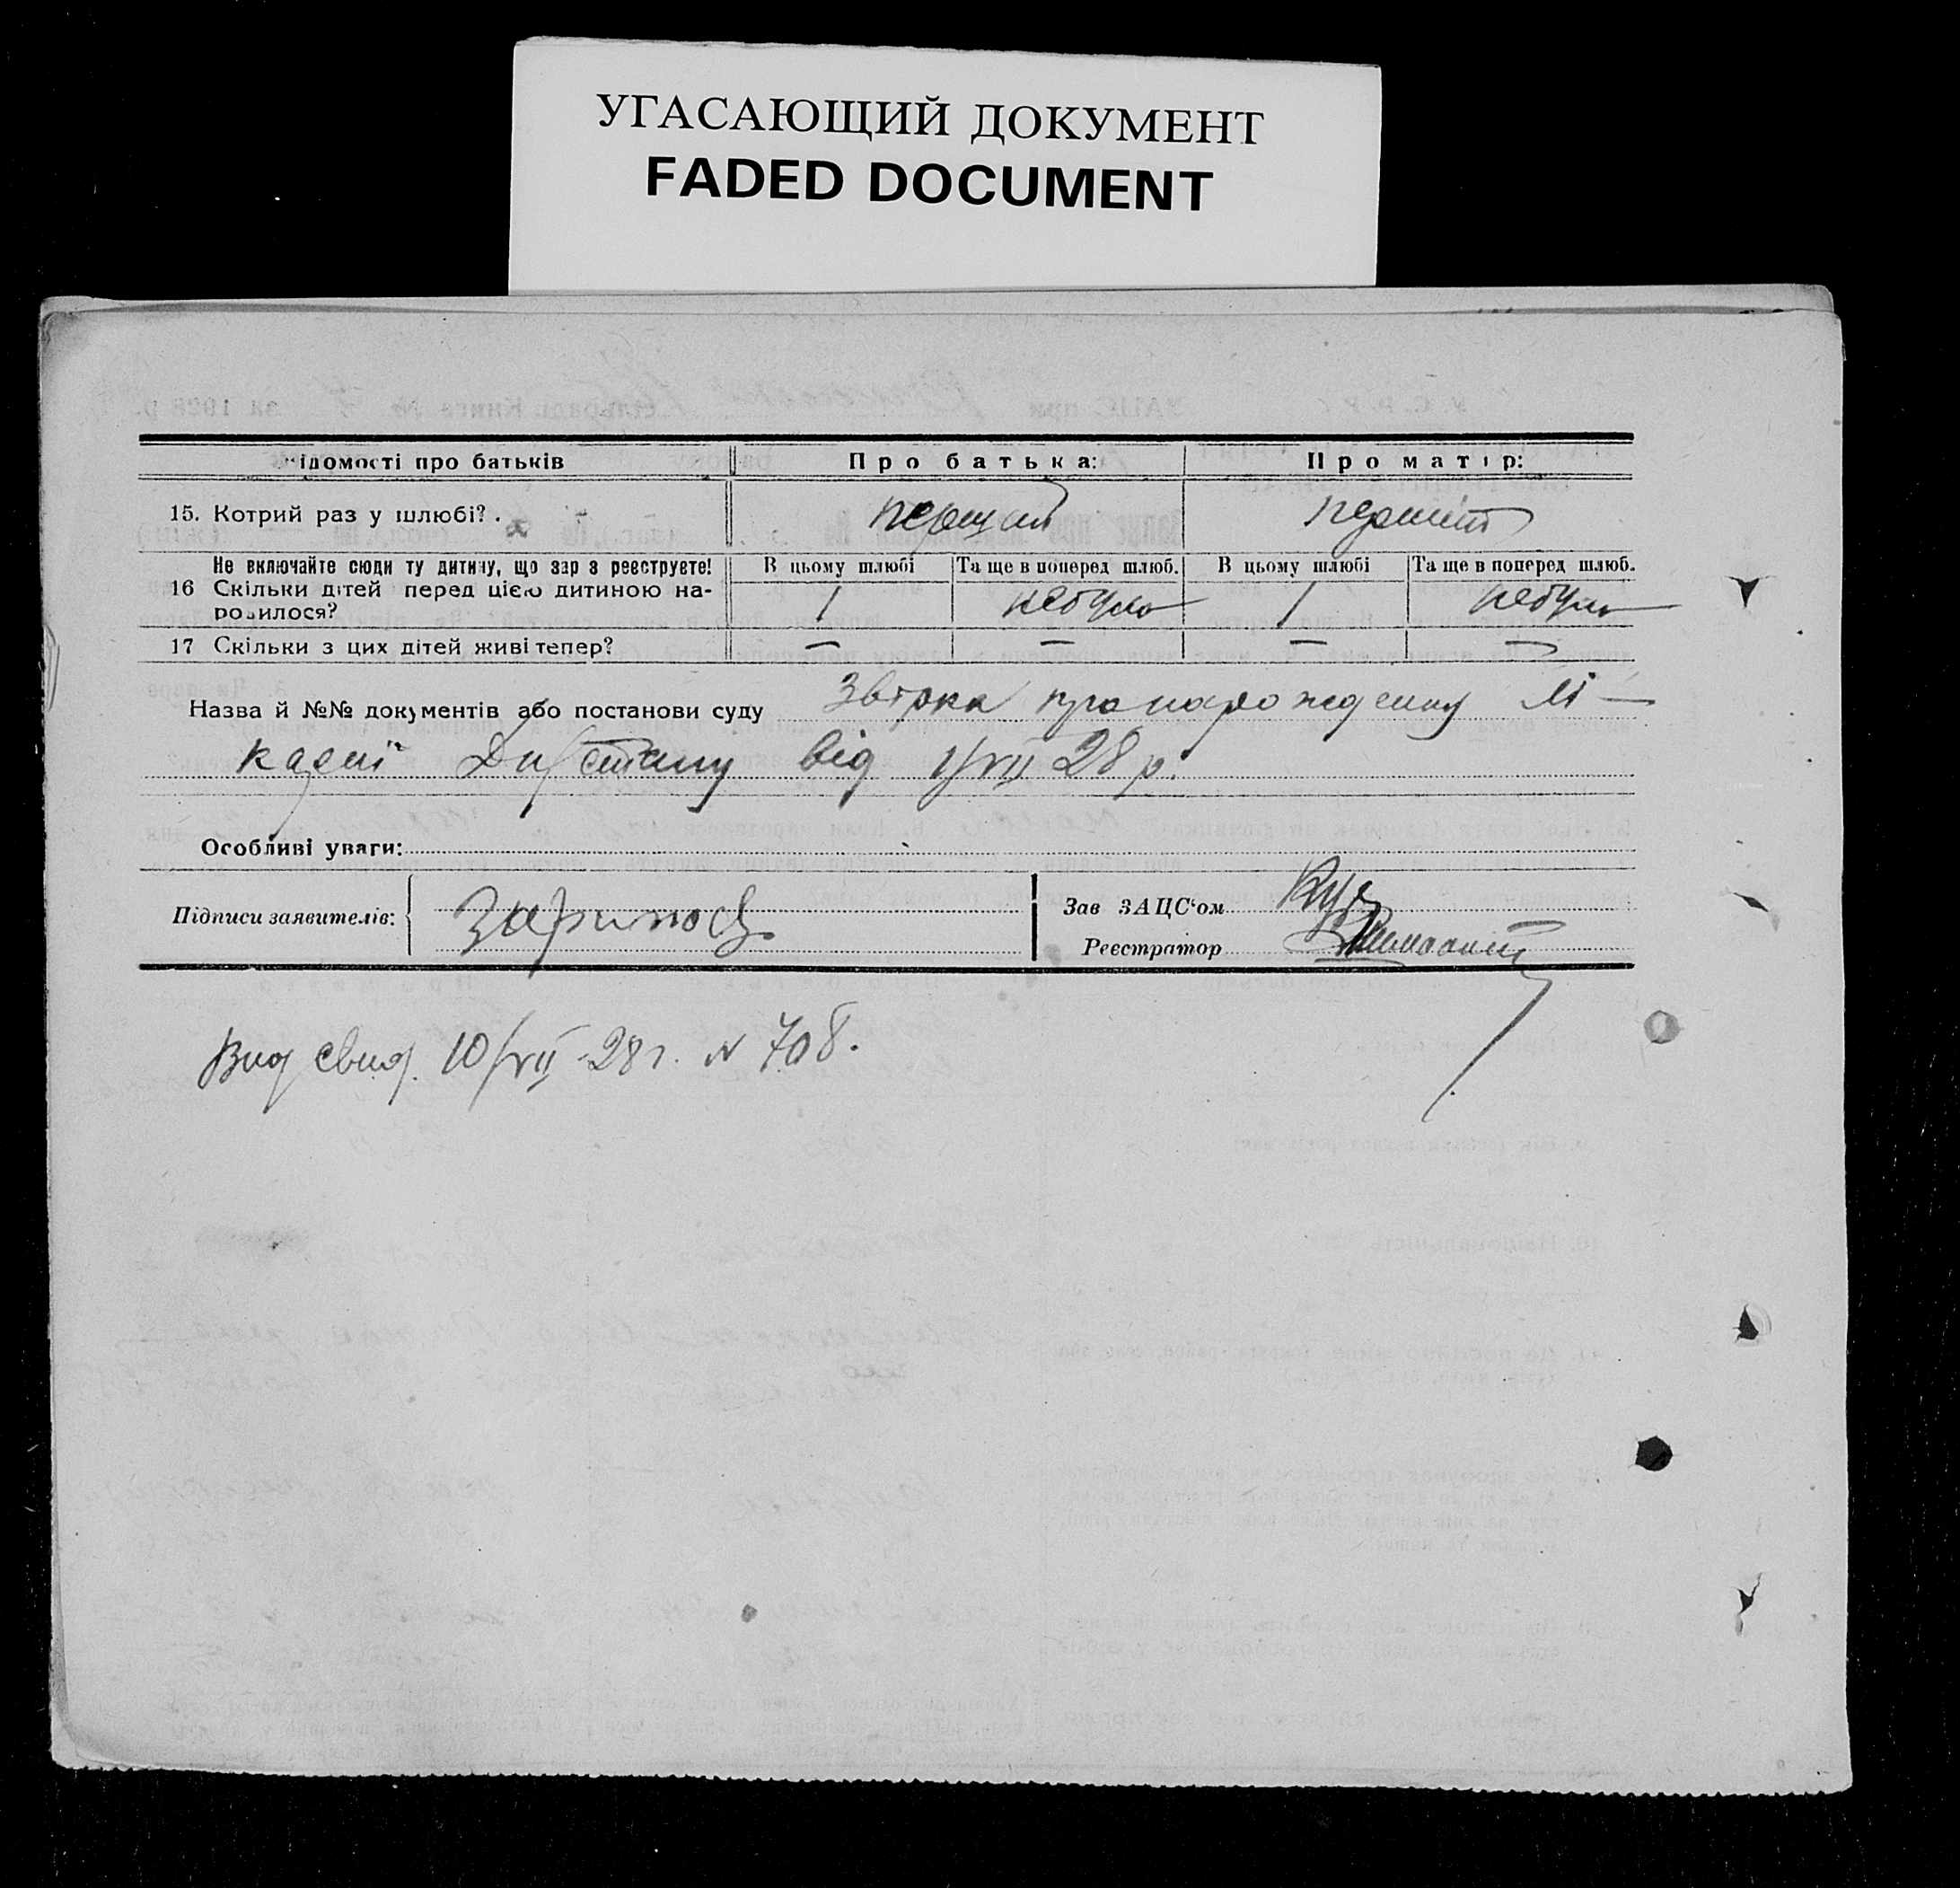 УГАСАЮЩИЙ ДОКУМЕНТ
FADED DOCUMENT
ідомості про батьків Про батька: Про матір:
15. Котрий раз у шлюбі? . перший перший
Не включайте сюди ту дитину, що зар з реєструєте! В цьому шлюбі Та ще в поперед шлюб. В цьому шлюбі Та ще в поперед шлюб.
16 Скільки дітей перед цією дитиною на-
родилося? 1 небуло 1 небуло
17 Скільки з цих дітей живі тепер? — — — —
Назва й №№ документів або постанови суду Звірка про народження Лі-
карні від 1/VII 28 р.
Особливі уваги:
Підписи заявителів: Зав ЗАЦС'ом
Реєстратор
Вид свид. 10/VII-28 г. N 708.